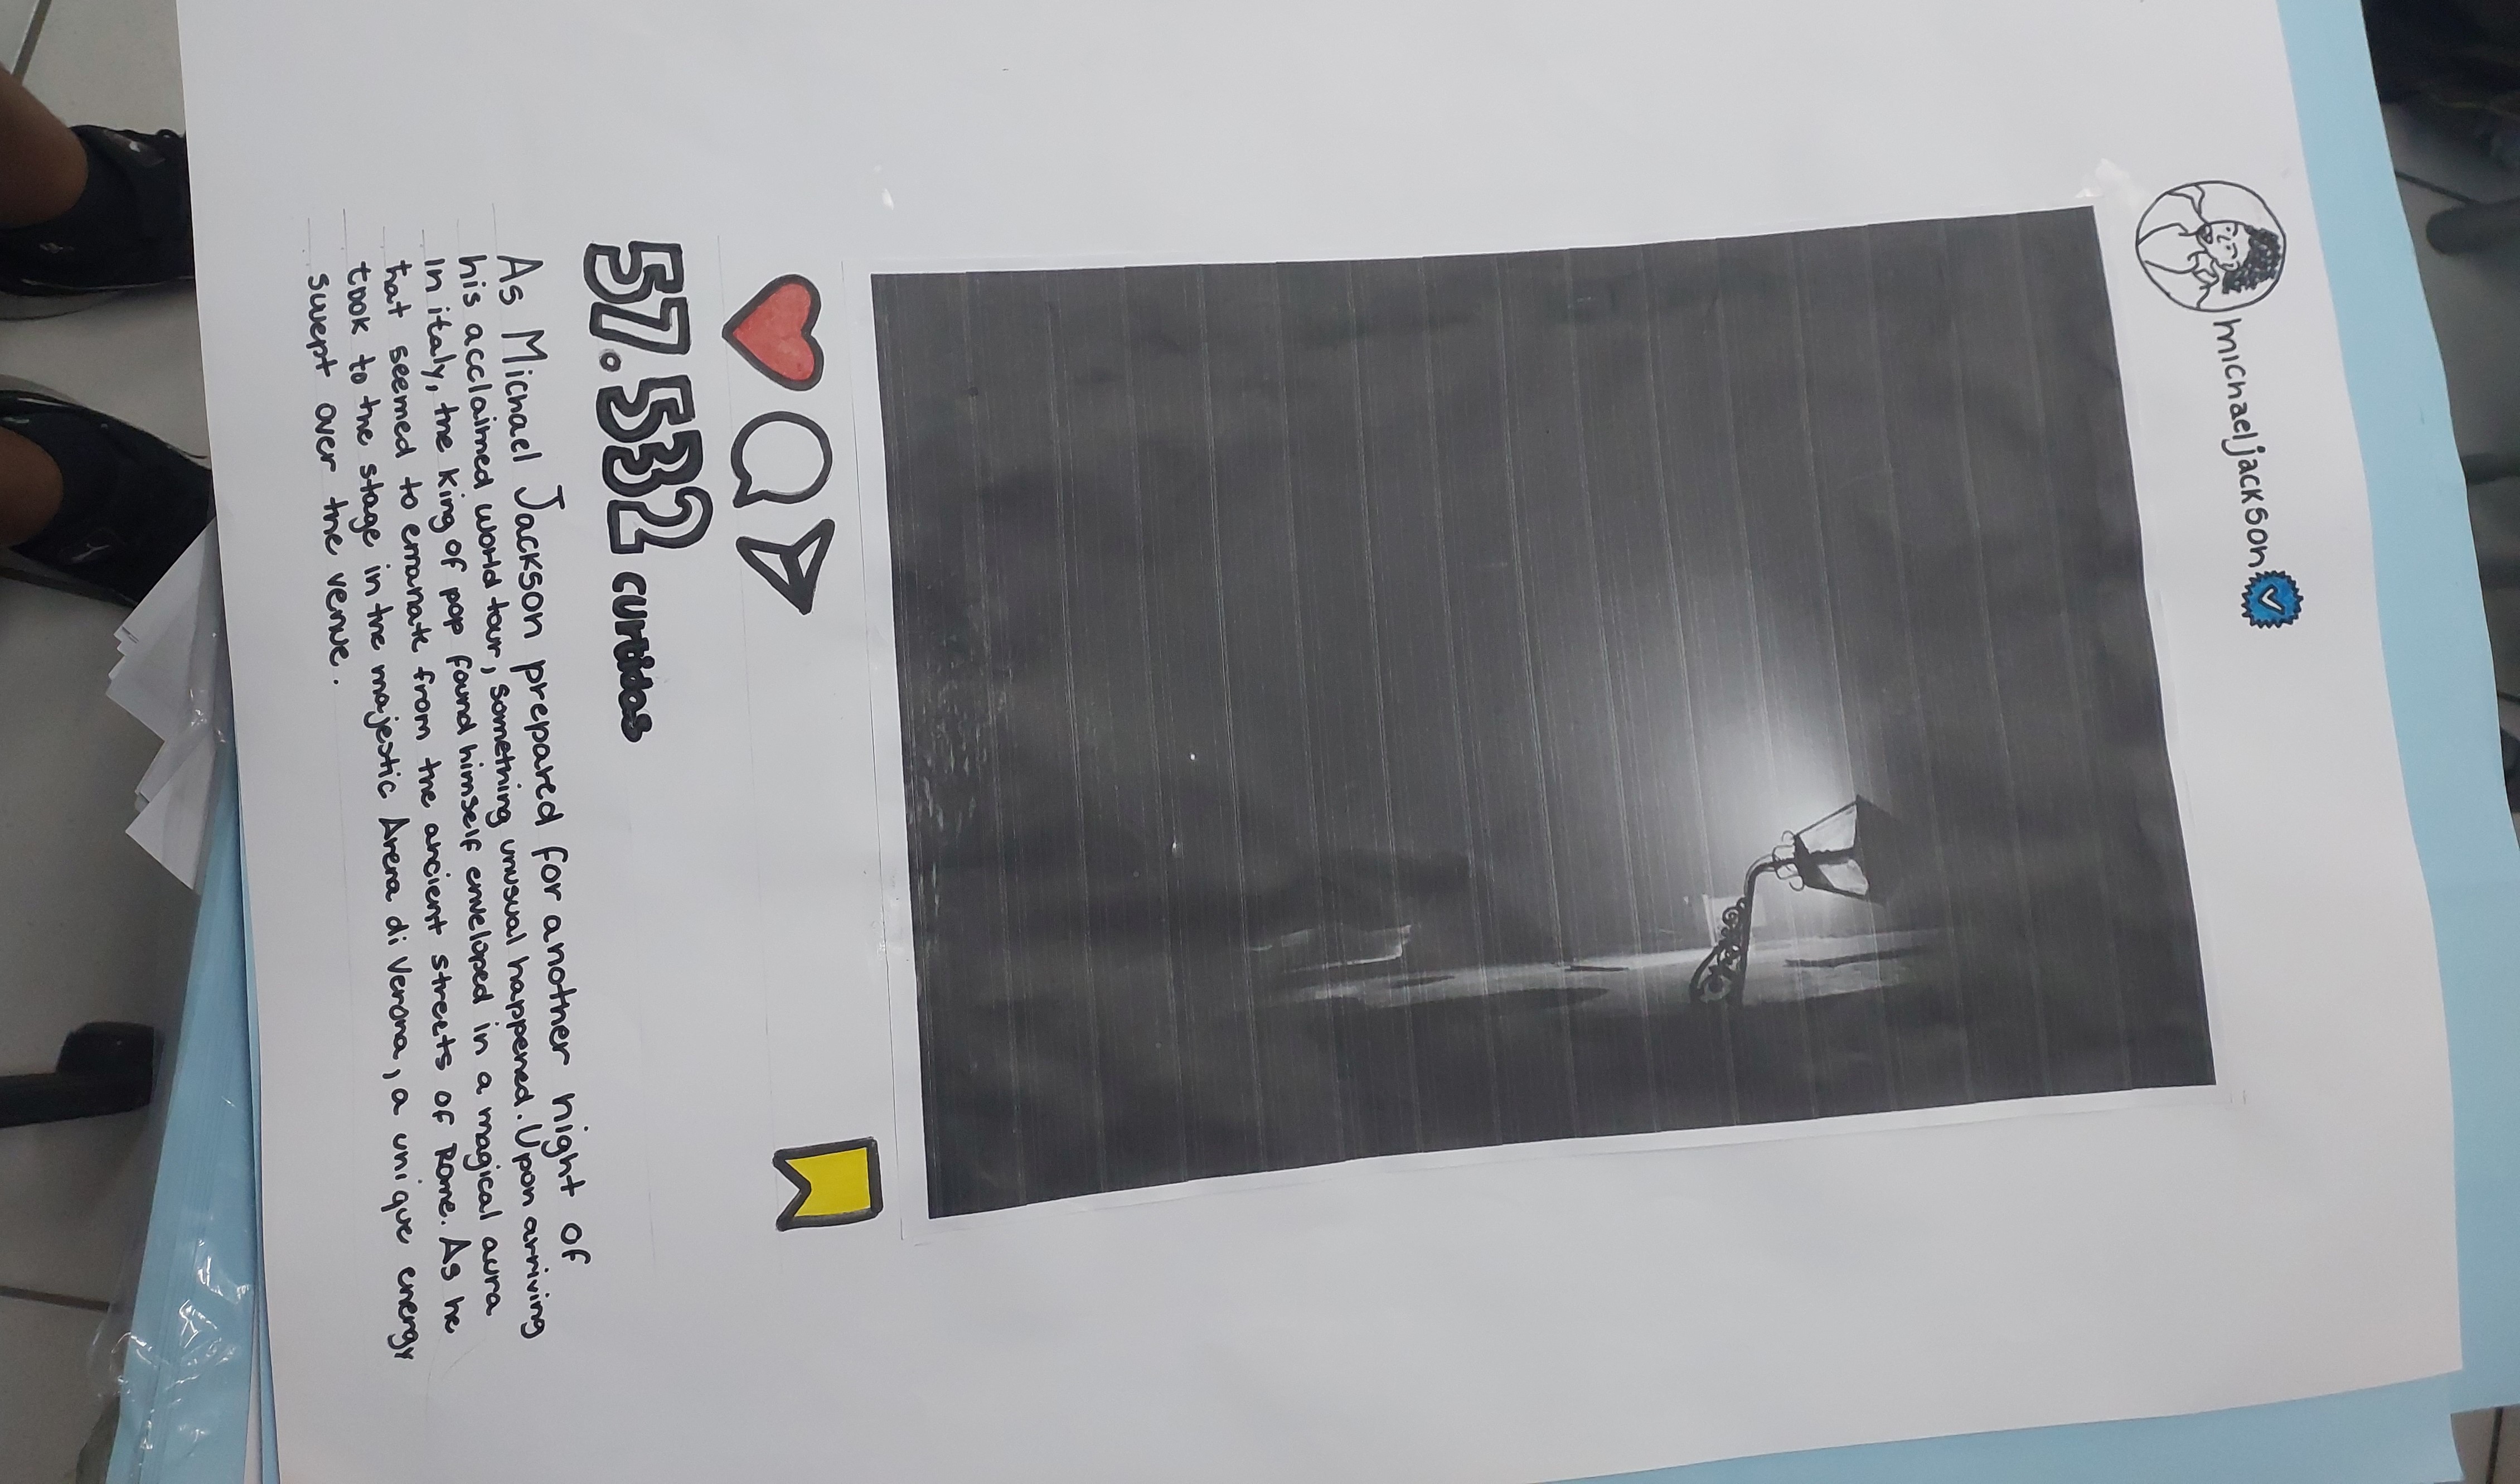 michaeljackson
57.532 curtidas
As Michael Jackson prepared for another night of
his acclaimed world tour, something unusual happened. Upon arriving
in italy, the king of pop found himself enveloped in a magical aura
that seemed to emanate from the ancient streets of Rome. As he
took to the stage in the majestic Arena di Verona, a unique energy
swept over the venue.